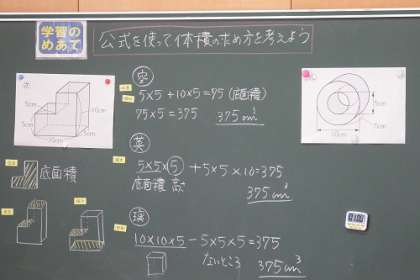 学習の
めあて
公式を使って体積の求め方を考えよう
5cm
5cm
10cm
5cm
10cm
空
5×5+10×5=75(底面積)
75×5=375 375cm³
英
5×5×5+5×5×10=375
底面積 高さ 375cm³
底面積
10×10×5-5×5×5=375
ないところ 375cm³
10cm
5cm